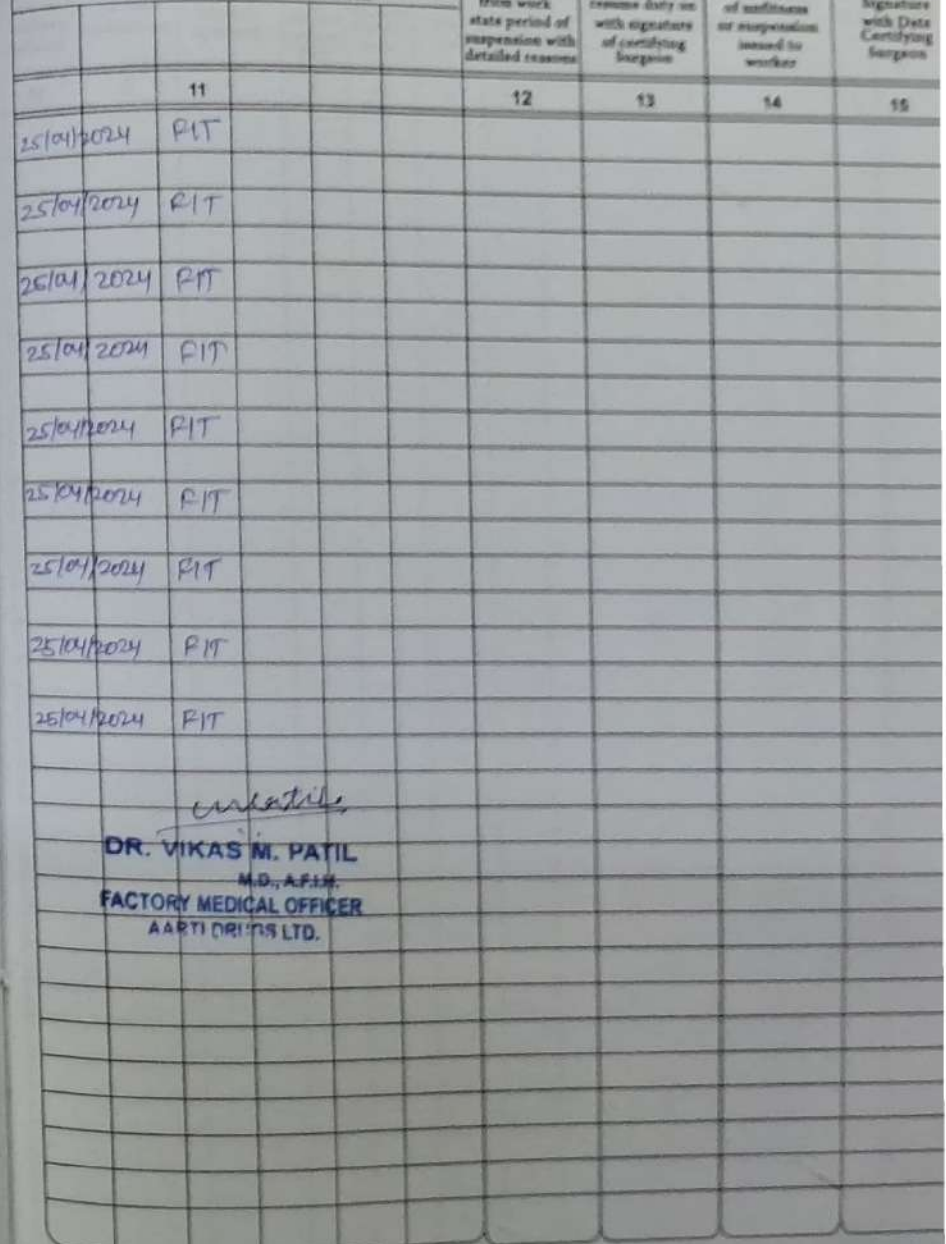 from work
state period of
suspension with
detailed reasons
resume duty on
with signature
of certifying
Surgeon
of unfitness
or suspension
issued to
worker
Signature
with Date
Certifying
Surgeon
11 12 13 14 15
25/04/2024 FIT
25/04/2024 FIT
25/04/2024 FIT
25/04/2024 FIT
25/04/2024 FIT
25/04/2024 FIT
25/04/2024 FIT
25/04/2024 FIT
25/04/2024 FIT
DR. VIKAS M. PATIL
M.D., A.F.I.H.
FACTORY MEDICAL OFFICER
AARTI DRUGS LTD.